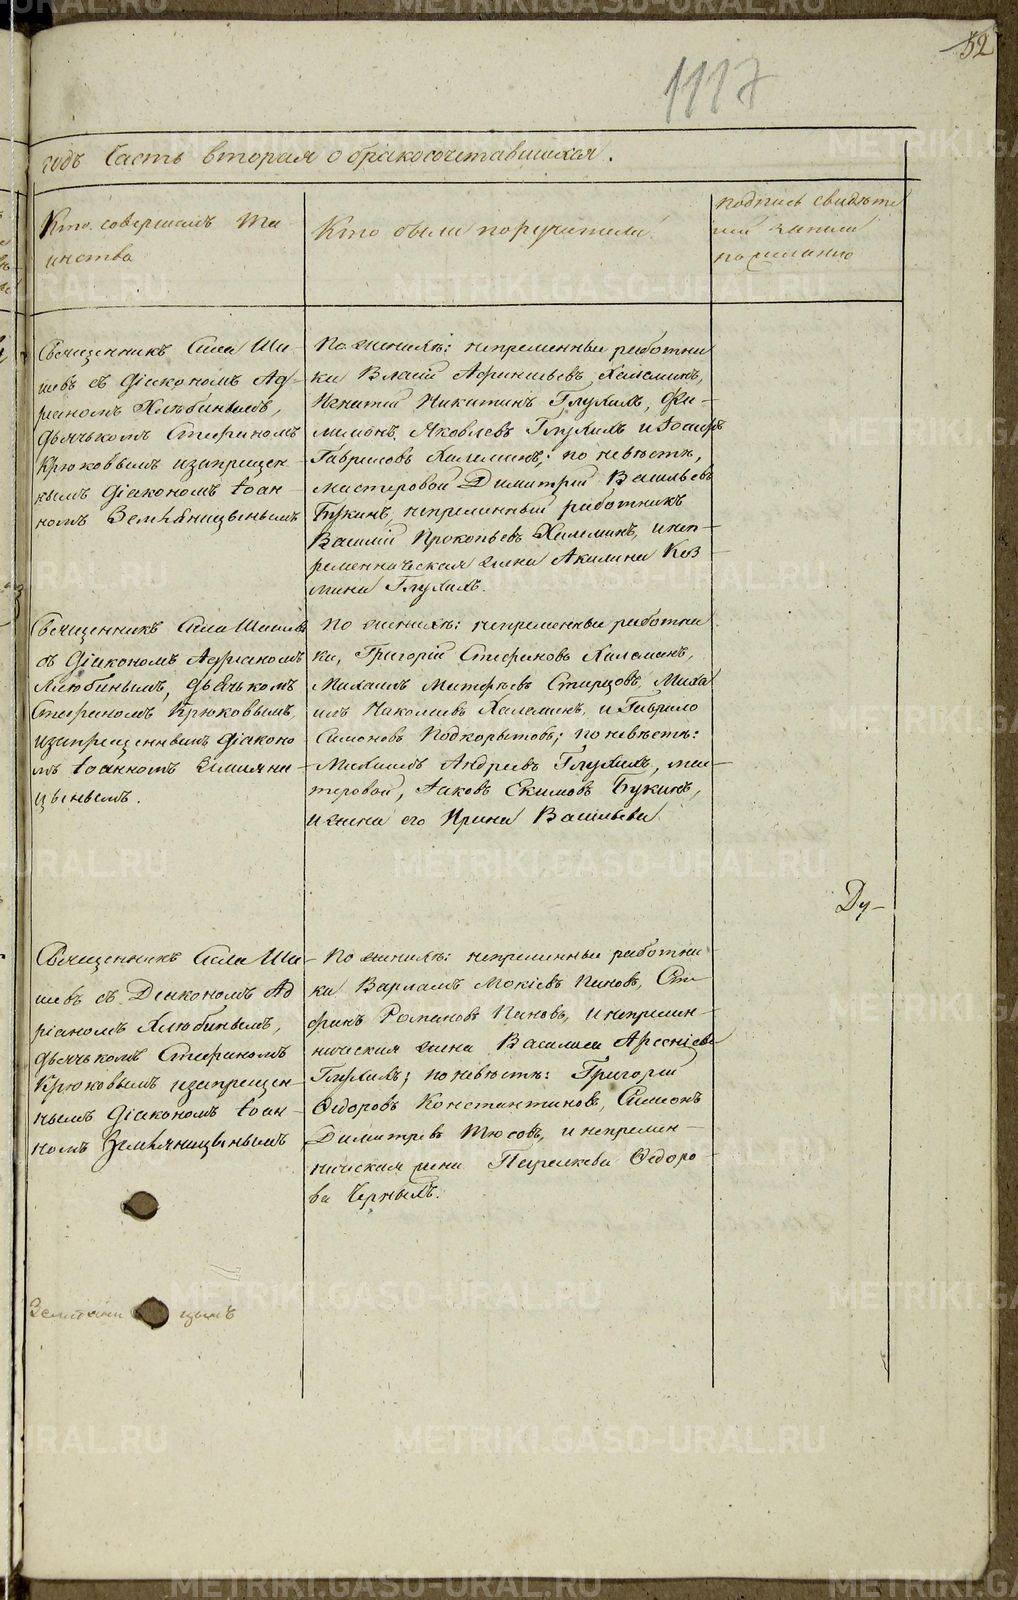 52
1117
годъ Часть вторая о бракосочетавшихся.
Кто совершалъ Та-
инства
Кто были поручители
подпись свидѣте
лей записи
по желанію
Священникъ Сила Ши-
шевъ съ Діакономъ Ад-
ріаномъ Хлюбинымъ,
дьячькомъ Стефаномъ
Крюковымъ и запрещен-
нымъ Діакономъ Іоан-
номъ Земляницынымъ
По женихѣ: непременные работни
ки Власій Афанасьевъ Халеминъ,
Игнатій Никитинъ Глухихъ, Фи-
лимонъ Яковлевъ Глухихъ и Іосифъ
Гавриловъ Халеминъ; по невѣстѣ,
мастеровой Димитрій Васильевъ
Букинъ, непременный работникъ
Василій Прокопьевъ Халеминъ, и неп-
ременническая жена Акилина Коз
мина Глухихъ.
Священникъ Сила Шишевъ
съ Діакономъ Адріаномъ
Хлюбинымъ, дьячькомъ
Стефаномъ Крюковымъ
и запрещеннымъ діаконо
мъ Іоанномъ Земляни
цынымъ.
По женихѣ: непременные работни
ки, Григорій Стефановъ Халеминъ,
Михаилъ Матфѣевъ Старцовъ, Миха
илъ Николаевъ Халеминъ, и Гаврило
Симоновъ Подкорытовъ; по невѣстѣ:
Михаилъ Андреевъ Глухихъ, мас
теровой, Іаковъ Екимовъ Букинъ,
и жена его Ирина Васильева
Ду-
Священникъ Сила Ши-
шевъ съ Деакономъ Ад
ріаномъ Хлюбинымъ,
дьячькомъ Стефаномъ
Крюковымъ и запрещен-
нымъ Діакономъ Іоан-
номъ Земляницынымъ
По женихѣ: непременные работни-
ки Варламъ Мокіевъ Пановъ, Сте
фанъ Романовъ Пановъ, и непремен-
ническая жена Василиса Арсеніева
Глухихъ; по невѣстѣ: Григорій
Ѳедоровъ Константиновъ, Симеонъ
Димитріевъ Тюсовъ, и непремен-
ническая жена Параскева Ѳедоро
ва Черныхъ.
METRIKI.GASO-URAL.RU